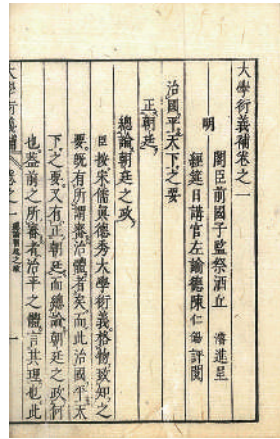 大學衍義補卷之一
閣臣前國子監祭酒丘 濬進呈
明
經筵日講官左諭德陳仁錫評閱
治國平天下之要
正朝廷
總論朝廷之政
臣按宋儒眞德秀大學衍義格物致知之
要既有所謂審治體者矣而此治國平天
下之要又有正朝廷而總論朝廷之政何
也蓋前之所審者治平之體言其理也此
大學衍義補 卷之一 總論朝廷之政 一